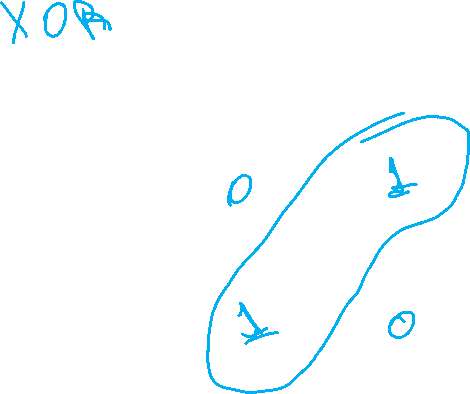 XOR
0 1
1 0